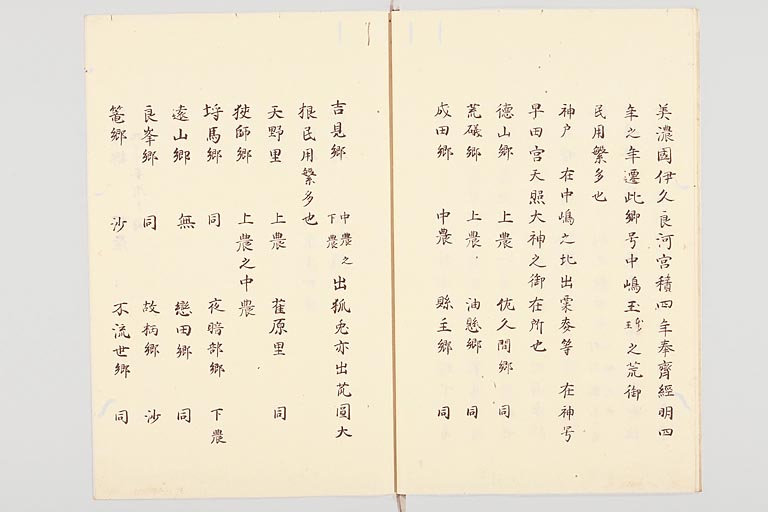 美濃国伊久良河宮積四年奉齊經明四
年之年遷此郷号中嶋玉之荒御
民用繁多也
神戸 在中嶋之北出粟麦等 在神号
早田宮天照大神之御在所也
徳山郷 上農 伉久間郷 同
荒礒郷 上農 油懸郷 同
成田郷 中農 縣主郷 同
吉見郷 中農之下農 出狐兎亦出茋圓大
根民用繁多也
天野里 上農 萑原里 同
狭師郷 上農之中農
埒馬郷 同 夜暗部郷 下農
遠山郷 無 戀田郷 同
良峯郷 同 故柄郷 沙
篭郷 沙 不流世郷 同